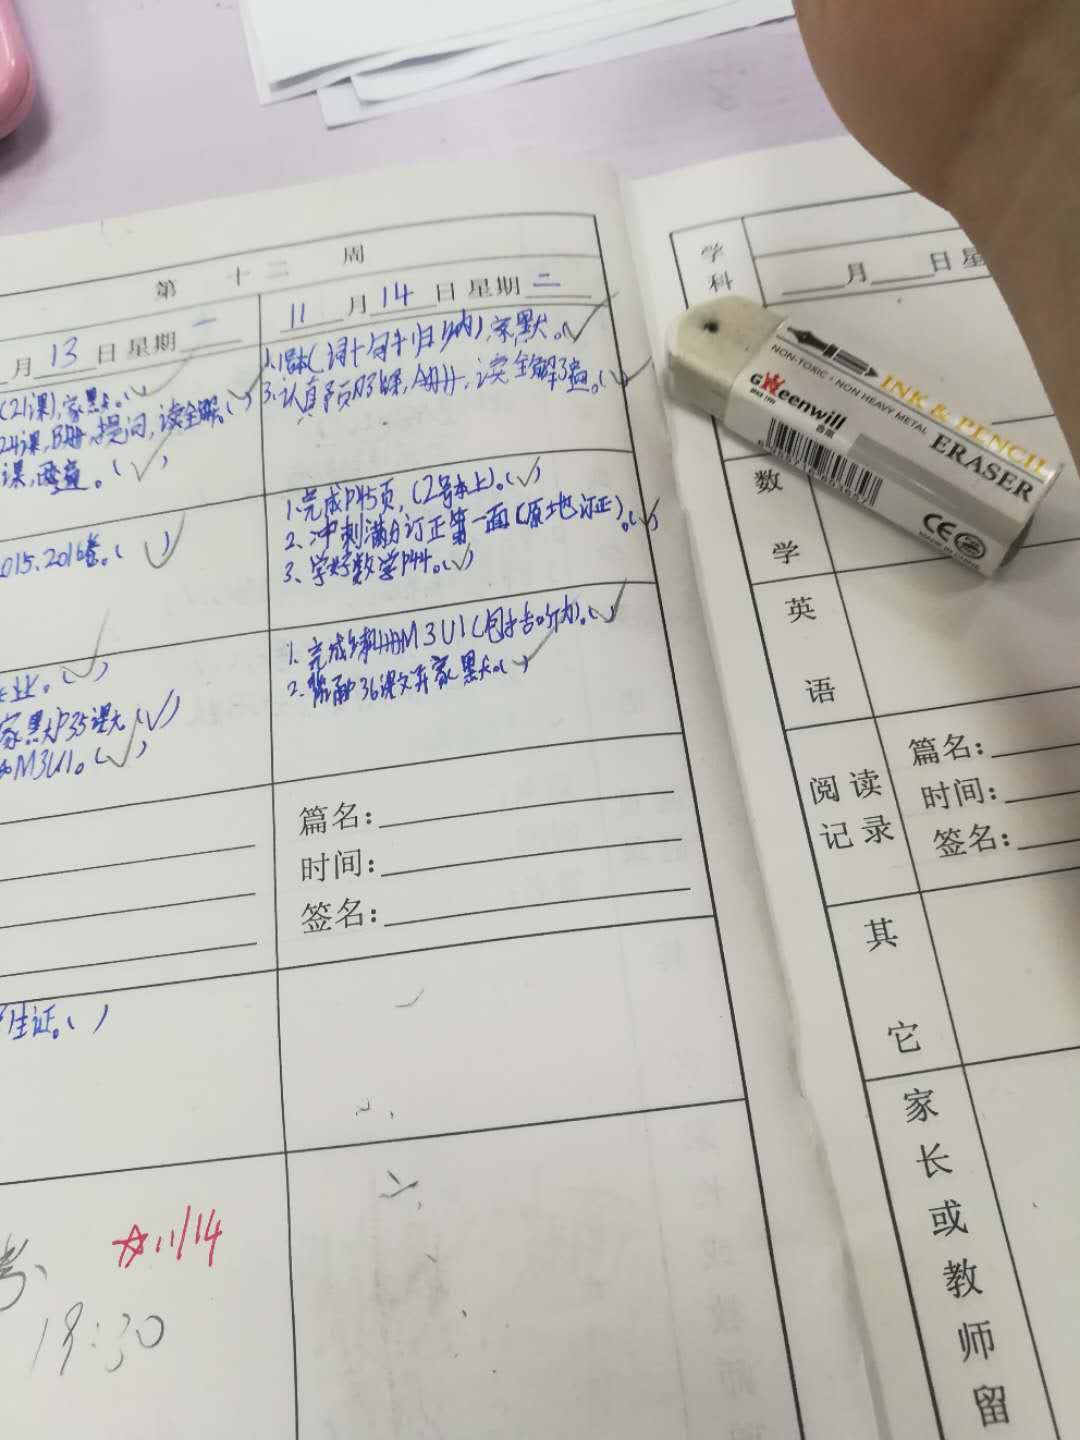 第 十二 周
月 13 日 星期 一
11 月 14 日 星期 二
(21课),家默。( )
24课,B册,提问,读全解( )
课,两遍。( )
015、2016卷。( )
业。( )
家默P35课文( )
M3U1。( )
生证。( )
☆11/14
19:30
(词+句+归纳),家默。( )
3.认真预习课,读全解3遍。( )
1.完成P45页,(2号本上)。( )
2、冲刺满分订正第一面(原地订正)。( )
3、学好数学P44。( )
1、完成练册M3U1(包括听力)。( )
2.P36课文并家默。( )
篇名:
时间:
签名:
学科
月 日 星
数学
英语
阅读记录
篇名:
时间:
签名:
其它
家长或教师留
INK & PENCIL
ERASER
NON-TOXIC • NON HEAVY METAL
Greenwill
CE